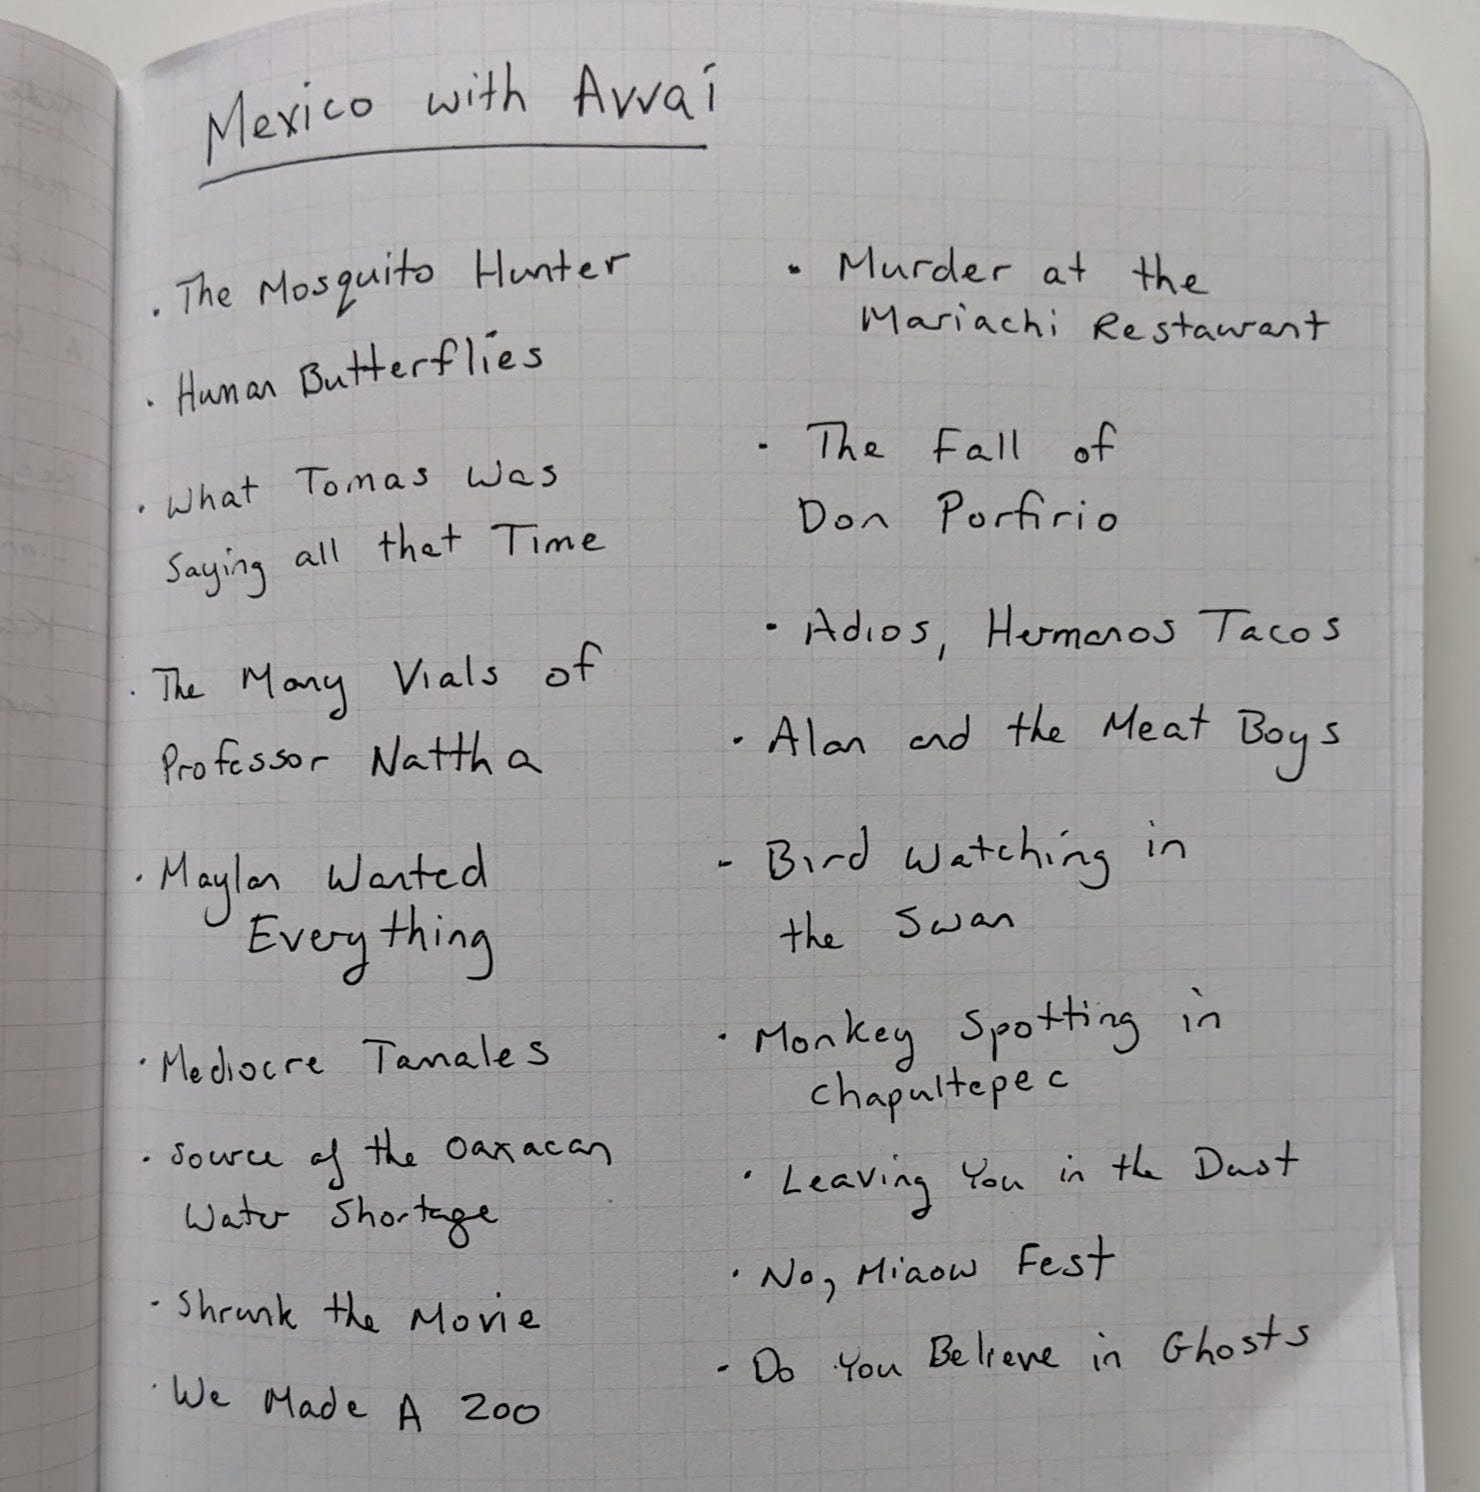 Mexico with Avvai
. The Mosquito Hunter
. Human Butterflies
. What Tomas Was
Saying all that Time
. The Many Vials of
Professor Nattha
. Maylan Wanted
Everything
. Mediocre Tamales
. Source of the Oaxacan
Water Shortage
- Shrunk the Movie
. We Made A Zoo
• Murder at the
Mariachi Restaurant
- The Fall of
Don Porfirio
• Adios, Hermanos Tacos
• Alan and the Meat Boys
- Bird Watching in
the Swan
• Monkey Spotting in
Chapultepec
• Leaving You in the Dust
• No, Miaow Fest
- Do You Believe in Ghosts